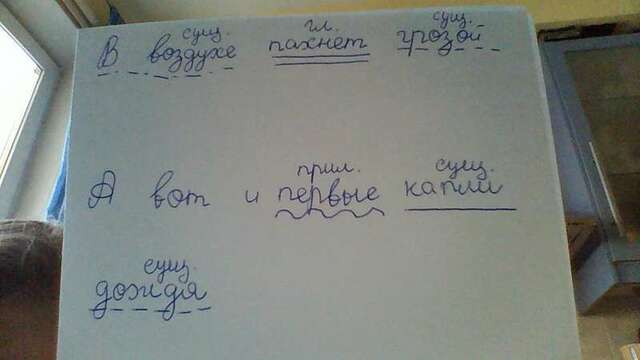 сущ. гл. сущ.
В воздухе пахнет грозой
прил. сущ.
А вот и первые капли
сущ.
дождя